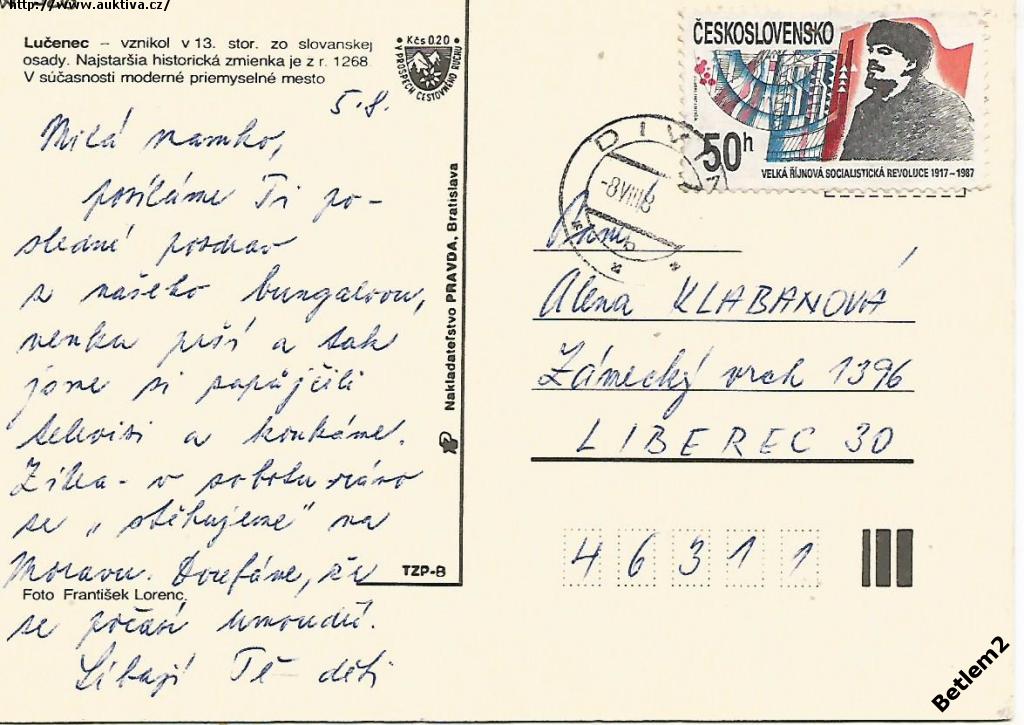 http://www.auktiva.cz/
Lučenec – vznikol v 13. stor. zo slovanskej
osady. Najstaršia historická zmienka je z r. 1268.
V súčasnosti moderné priemyselné mesto
• Kčs 0,20 •
V PROSPECH CESTOVNÉHO RUCHU
5.8.
Milá mamko,
posíláme Ti po-
slední pozdrav
z našeho bungalovu,
venku prší a tak
jsme si zapůjčili
televisi a koukáme.
Zítra - v sobotu ráno
se „stěhujeme" na
Moravu. Doufáme, že
se počasí umoudří.
Líbají Tě - děti
Foto František Lorenc.
TZP-B
Nakladateľstvo PRAVDA, Bratislava
ČESKOSLOVENSKO
50h
VELKÁ ŘÍJNOVÁ SOCIALISTICKÁ REVOLUCE 1917–1987
-8.VIII.8
Alena KLABANOVÁ
Zámecký vrch 1396
LIBEREC 30
46311
Betlem2